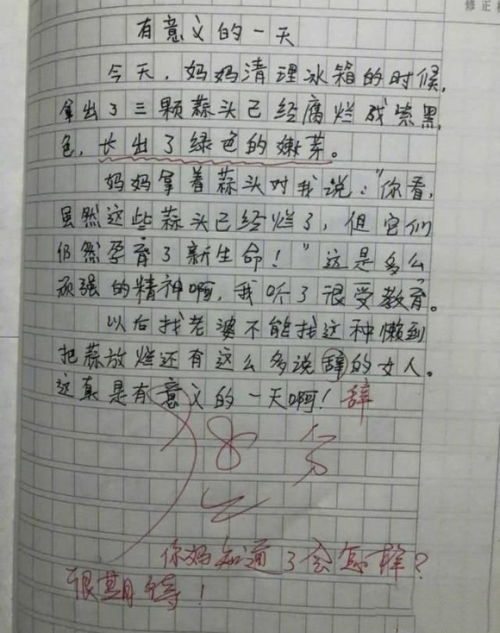 修正
有意义的一天
今天，妈妈清理冰箱的时候，
拿出了三颗蒜头已经腐烂成漆黑
色，长出了绿色的嫩芽。
妈妈拿着蒜头对我说："你看，
虽然这些蒜头已经烂了，但它们
仍然孕育了新生命！"这是多么
顽强的精神啊，我听了很受教育。
以后找老婆不能找这种懒到
把蒜放烂还有这么多说辞的女人。
这真是有意义的一天啊！辞
28分
你妈知道了会怎样？
很期待！